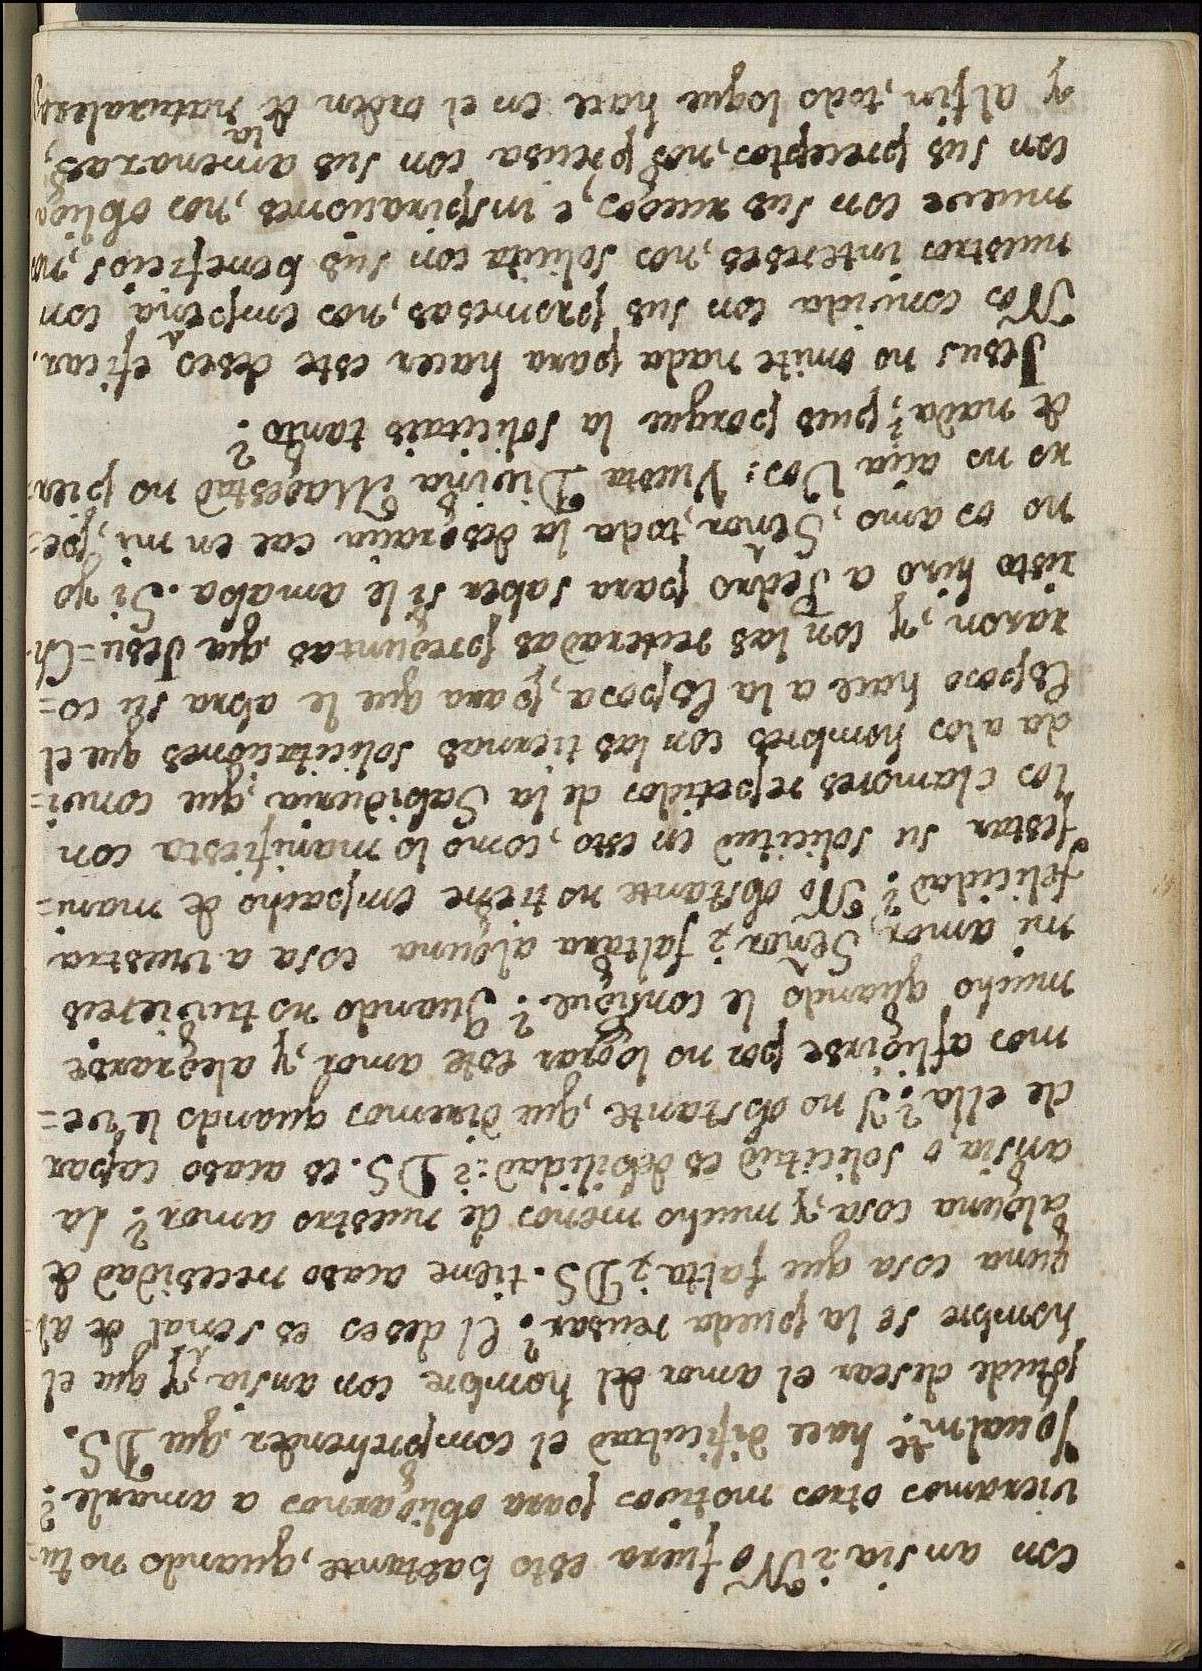 con ansia ¿No fuera esto bastante, quando no tu=
vieramos otros motivos para obligarnos a amarle?
Igualm.te hace dificultad el comprehender que DS.
puede desear el amor del hombre con ansia, y que el
hombre se la pueda reusar? El deseo es señal de al=
guna cosa que falta ¿DS. tiene acaso necesidad de
alguna cosa, y mucho menos de nuestro amor? La
ansia o solicitud es debilidad: ¿DS. es acaso capaz
de ella? Y no obstante, que diremos quando le ve=
mos afligirse por no lograr este amor, y alegrarse
mucho quando le consigue? Quando no tuviereis
mi amor, Señor ¿faltara alguna cosa a vuestra
felicidad? No obstante no tiene empacho de mani=
festar su solicitud en esto, como lo manifiesta con
los clamores repetidos de la Sabiduria, que convi=
da a los hombres con las tiernas solicitaciones que el
Esposo hace a la Esposa, para que le abra su co=
razon, y con las reiteradas preguntas que Jesu=Ch
risto hizo a Pedro para saber si le amaba. Si yo
no os amo, Señor, toda la desgracia cae en mi, pe=
ro no acia Vos: Vuestra Divina Magestad no pier
de nada; pues porque la solicitais tanto?
Jesus no omite nada para hacer este deseo eficaz.
Nos convida con sus promesas, nos empeña con
nuestros intereses, nos solicita con sus beneficios, nos
mueve con sus ruegos, e inspiraciones, nos obliga
con sus preceptos, nos precisa con sus amenazas,
y al fin, todo loque hace en el orden de la naturaleza